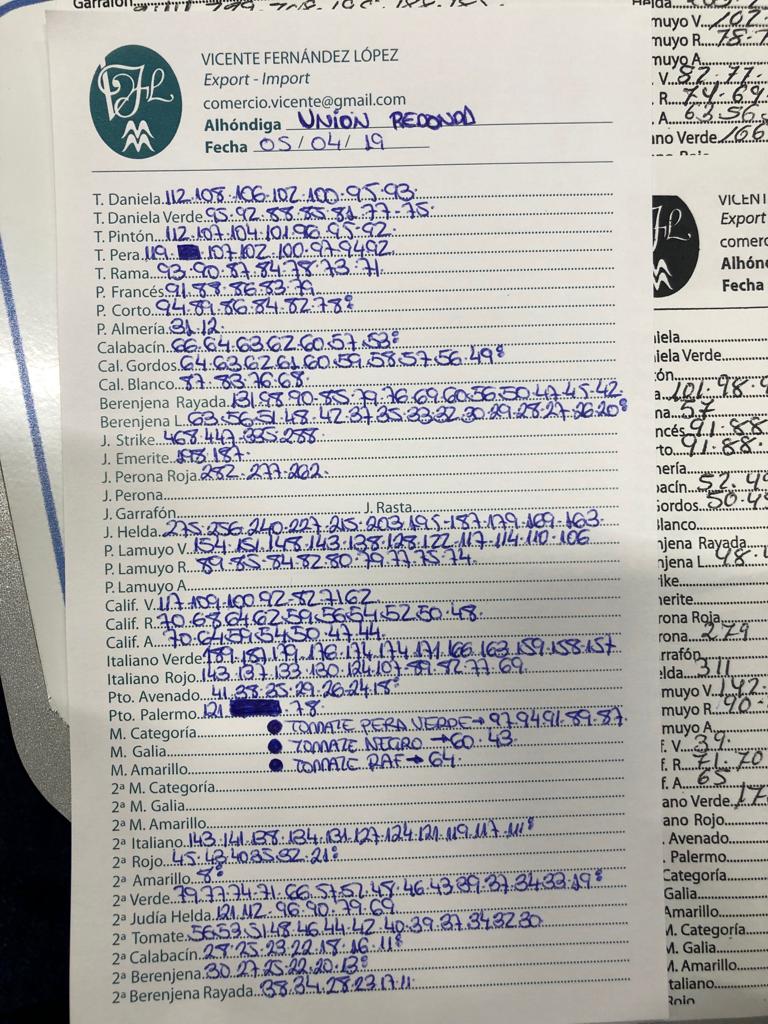 Garrafón
VICENTE FERNÁNDEZ LÓPEZ
Export - Import
comercio.vicente@gmail.com
Alhóndiga UNIÓN REDONDA
Fecha 05/04/19
T. Daniela 112.108.106.102.100.95.93.
T. Daniela Verde 95.92.88.85.81.77.75.
T. Pintón 112.107.104.101.96.95.92.
T. Pera 119. 107.102.100.97.94.92.
T. Rama 93.90.87.84.78.73.71.
P. Francés 91.88.86.83.79
P. Corto 94.89.86.84.82.78
P. Almería 31.12.
Calabacín 66.64.63.62.60.57.53
Cal. Gordos 64.63.62.61.60.59.58.57.56.49
Cal. Blanco 87.83.76.68.
Berenjena Rayada 131.98.90.85.79.76.69.60.56.50.47.45.42.
Berenjena L. 63.56.51.48.42.37.35.33.32.30.29.28.27.26.20
J. Strike 468.447.335.288.
J. Emerite 198.187.
J. Perona Roja 282.277.262.
J. Perona
J. Garrafón J. Rasta
J. Helda 275.256.240.227.215.203.195.187.179.169.163.
P. Lamuyo V. 154.151.148.143.138.128.122.117.114.110.106
P. Lamuyo R. 89.85.84.82.80.79.77.75.74.
P. Lamuyo A.
Calif. V. 117.109.100.92.82.71.62.
Calif. R. 70.68.64.62.59.56.54.52.50.48.
Calif. A. 70.64.59.54.50.47.44.
Italiano Verde 189.187.179.176.174.174.171.166.163.159.158.157
Italiano Rojo 143.137.133.130.124.107.89.82.77.69.
Pto. Avenado 41.38.35.29.26.24.18
Pto. Palermo 121. .78.
M. Categoría • TOMATE PERA VERDE→97.94.91.89.87.
M. Galia • TOMATE NEGRO→60.43.
M. Amarillo • TOMATE RAF→64.
2ª M. Categoría
2ª M. Galia
2ª M. Amarillo
2ª Italiano 143.141.138.134.131.127.124.121.119.117.111
2ª Rojo 45.43.40.35.32.21
2ª Amarillo 8
2ª Verde 79.77.74.71.66.57.52.48.46.43.39.37.34.33.19
2ª Judía Helda 121.112.96.90.79.69.
2ª Tomate 56.53.51.48.46.44.42.40.39.37.34.32.30
2ª Calabacín 27.25.23.22.18.16.11
2ª Berenjena 30.27.25.22.20.13
2ª Berenjena Rayada 38.34.28.23.17.11.
muyo V. 102
muyo R. 78.7
muyo A.
V. 82.77.
R. 74.69
A. 63.56.5
no Verde 166
VICENT
Export
comerc
Alhón
Fecha
iela
iela Verde
ón
a 101.98.9
na 57
ncés 91.88
to 91.88.
ería
acín 52.49
Gordos 50.4
Blanco
njena Rayada
njena L. 48.4
ike
erite
rona Roja
rona 279
rrafón
elda 311
muyo V. 142.
muyo R. 90.
muyo A.
f. V. 39.
f. R. 71.70
f. A. 65
ano Verde 17
ano Rojo
. Avenado
. Palermo
Categoría
Galia
Amarillo
M. Categoría
M. Galia
M. Amarillo
taliano
Rojo